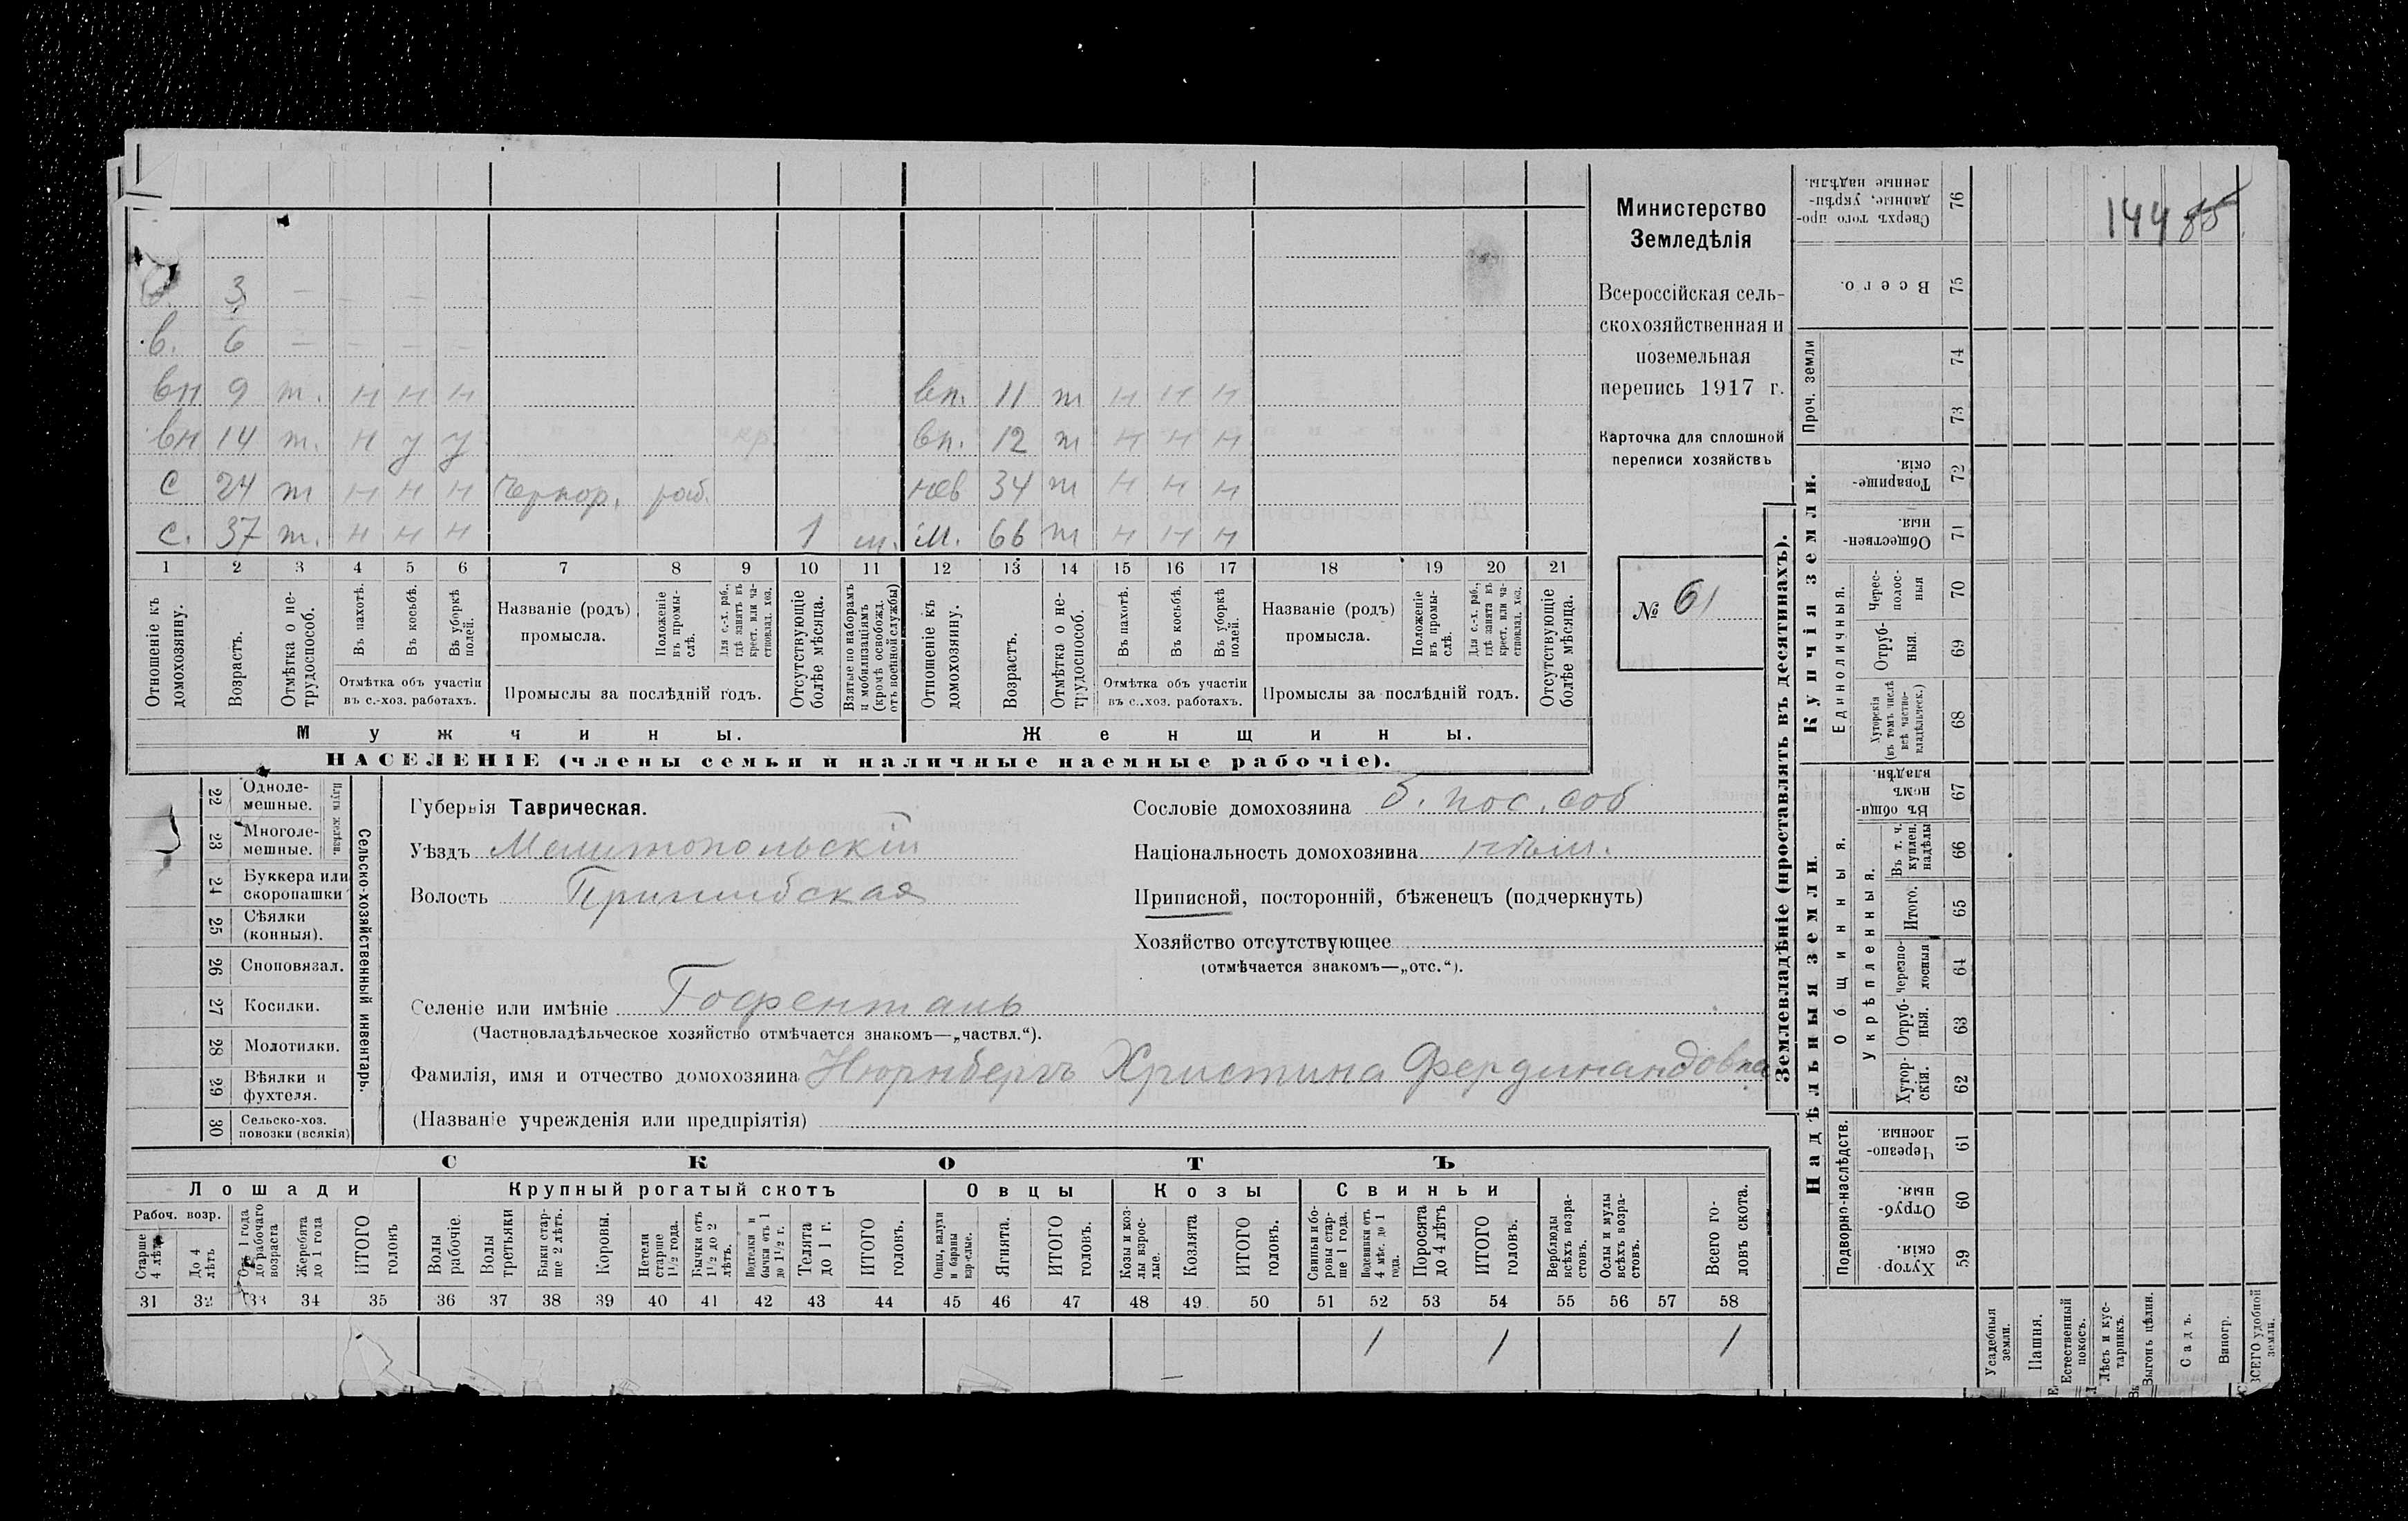 144 85
3 — — — —
в. 6 — — — —
вн 9 т. н н н вн. 11 т н н н
вн 14 т. н у у кр. вн. 12 т н н н
с 24 т н н н Чернор. раб. нев 34 т н н н
с. 37 т. н н н 1 м. 66 т н н н
1 2 3 4 5 6 7 8 9 10 11 12 13 14 15 16 17 18 19 20 21
Отношеніе къ домохозяину.
Возрастъ.
Отмѣтка о не-трудоспособ.
Въ пахотѣ.
Въ косьбѣ.
Въ уборкѣ полей.
Отмѣтка объ участіи
въ с.-хоз. работахъ.
Названіе (родъ)
промысла.
Положеніе въ промы-слѣ.
Для с.-х. раб., гдѣ занятъ въ крест. или ча-стновлад. хоз.
Промыслы за послѣдній годъ.
Отсутствующіе болѣе мѣсяца.
Взятые по наборамъ и мобилизаціямъ (кромѣ освобожд. отъ военной службы)
Отношеніе къ домохозяину.
Возрастъ.
Отмѣтка о не-трудоспособ.
Въ пахотѣ.
Въ косьбѣ.
Въ уборкѣ полей.
Отмѣтка объ участіи
въ с.-хоз. работахъ.
Названіе (родъ)
промысла.
Положеніе въ промы-слѣ.
Для с.-х. раб., гдѣ занята въ крест. или ча-стновлад. хоз.
Промыслы за послѣдній годъ.
Отсутствующіе болѣе мѣсяца.
Мужчины. Женщины.
НАСЕЛЕНІЕ (члены семьи и наличные наемные рабочіе).
Министерство
Земледѣлія
Всероссійская сель-
скохозяйственная и
поземельная
перепись 1917 г.
Карточка для сплошной
переписи хозяйствъ
№ 61
22 Одноле-мешные.
23 Многоле-мешные.
Плуги желѣзн.
24 Буккера или скоропашки
25 Сѣялки (конныя).
26 Сноповязал.
27 Косилки.
28 Молотилки.
29 Вѣялки и фухтеля.
30 Сельско-хоз. повозки (всякія)
Сельско-хозяйственный инвентарь.
Губернія Таврическая.
Уѣздъ Мелитопольскій
Волость Пришибская
Сословіе домохозяина З. пос. соб
Національность домохозяина нѣм.
Приписной, посторонній, бѣженецъ (подчеркнуть)
Хозяйство отсутствующее
(отмѣчается знакомъ—„отс.“).
Селеніе или имѣніе Гофенталь
(Частновладѣльческое хозяйство отмѣчается знакомъ—„частвл.“).
Фамилія, имя и отчество домохозяина Нюрнбергъ Христина Фердинандовна
(Названіе учрежденія или предпріятія)
СКОТЪ
Лошади Крупный рогатый скотъ Овцы Козы Свиньи
Рабоч. возр.
Старше 4 лѣтъ
До 4 лѣтъ
Отъ 1 года до рабочаго возраста
Жеребята до 1 года
ИТОГО головъ
Волы рабочіе.
Волы третьяки
Быки стар-ше 2 лѣтъ.
Коровы.
Нетели старше 1½ года.
Бычки отъ 1½ до 2 лѣтъ.
Подтелки и бычки отъ 1 до 1½ г.
Телята до 1 г.
ИТОГО головъ.
Овцы, валухи и бараны взрослые.
Ягнята.
ИТОГО головъ.
Козы и коз-лы взрос-лые.
Козлята
ИТОГО головъ.
Свиньи и бо-ровы стар-ше 1 года.
Подсвинки отъ 4 мѣс. до 1 года.
Поросята до 4 лѣтъ
ИТОГО головъ.
Верблюды всѣхъ возра-стовъ.
Ослы и мулы всѣхъ возра-стовъ.
Всего го-ловъ скота.
31 32 33 34 35 36 37 38 39 40 41 42 43 44 45 46 47 48 49 50 51 52 53 54 55 56 57 58
1 1 1
Землевладѣніе (проставлять въ десятинахъ).
Надѣльныя земли. Купчія земли. Проч. земли
Подворно-наслѣдств. Общинныя. Единоличныя.
Укрѣпленныя.
59 Хутор-скія.
60 Отруб-ныя.
61 Черезпо-лосныя.
62 Хутор-скія.
63 Отруб-ныя.
64 Черезпо-лосныя
65 Итого.
66 Въ т. ч. куплен. надѣлы
67 Въ общи-номъ владѣн.
68 Хуторскія (въ томъ числѣ всѣ частно-владѣльческ.)
69 Отруб-ныя.
70 Черес-полос-ныя
71 Обществен-ныя.
72 Товарище-скія.
73
74
75 Всего.
76 Сверхъ того про-данные, укрѣп-ленные надѣлы.
Усадебныя земли.
Пашня.
Естественный покосъ.
Лѣсъ и кус-тарникъ.
Выгонъ цѣлин.
Садъ.
Виногр.
ВСЕГО удобной земли.